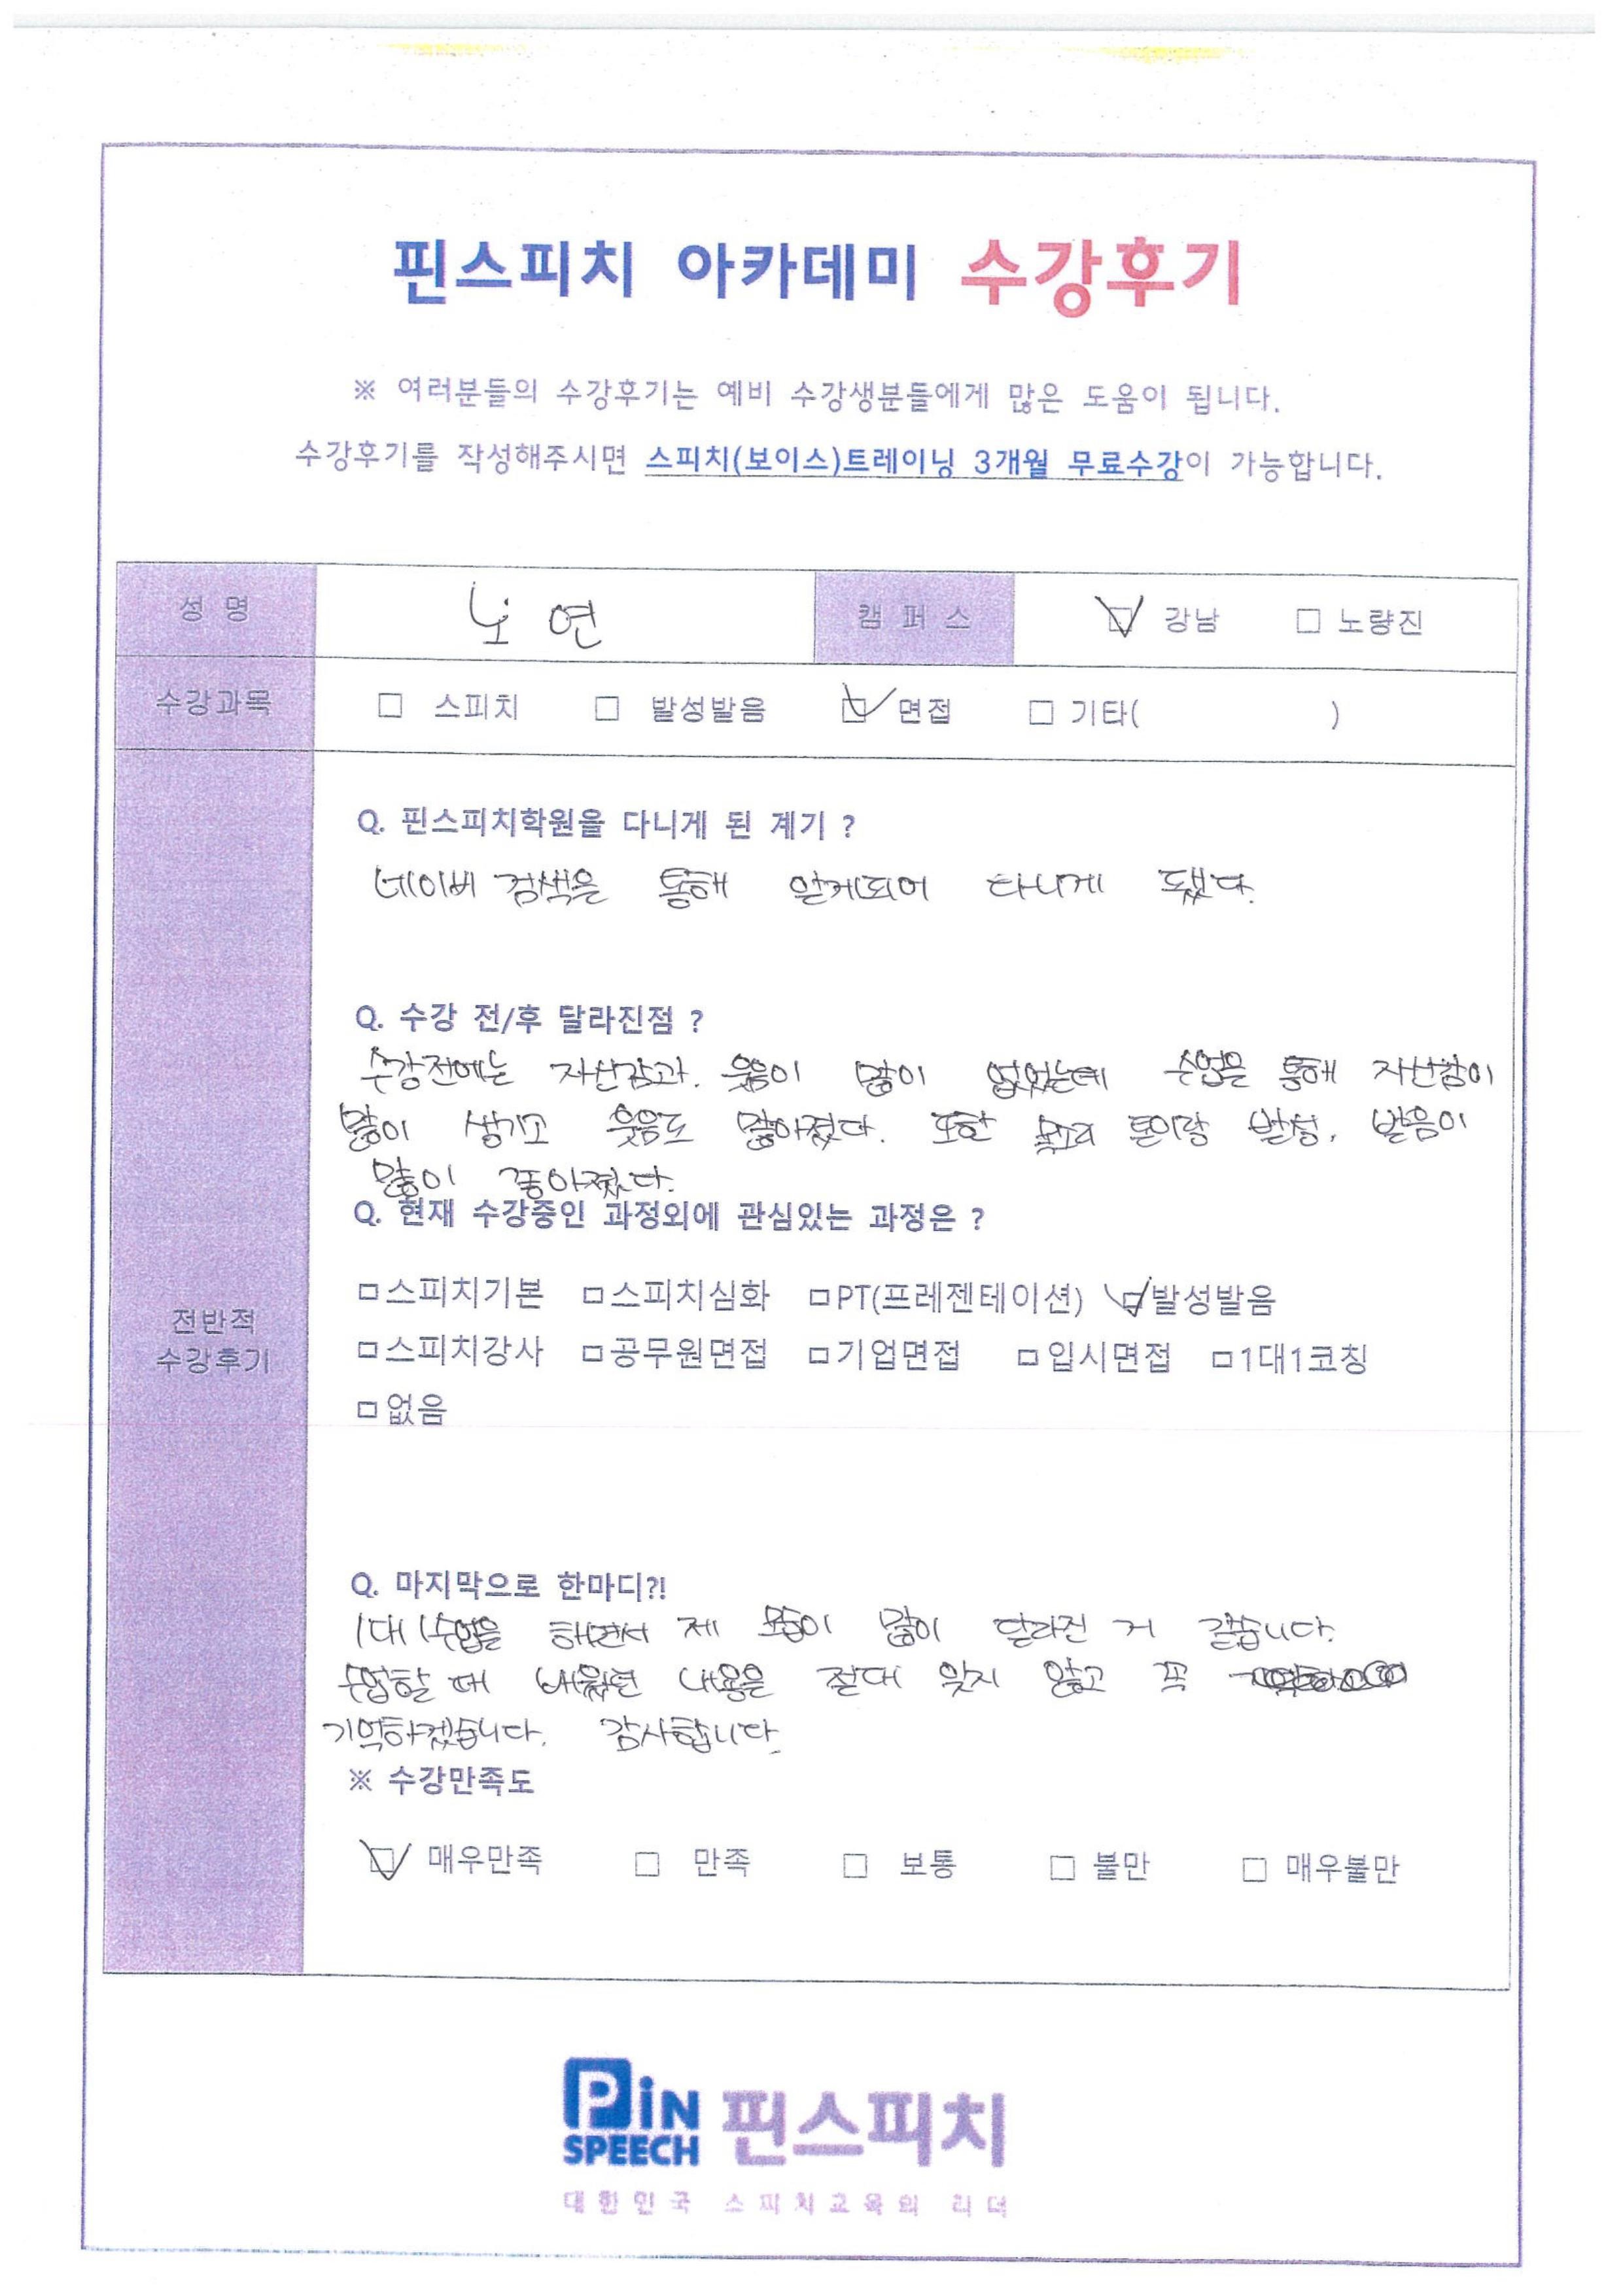 핀스피치 아카데미 수강후기
※ 여러분들의 수강후기는 예비 수강생분들에게 많은 도움이 됩니다.
수강후기를 작성해주시면 스피치(보이스)트레이닝 3개월 무료수강이 가능합니다.
성 명 연 캠 퍼 스 ☑ 강남 □ 노량진
수강과목 □ 스피치 □ 발성발음 ☑ 면접 □ 기타( )
Q. 핀스피치학원을 다니게 된 계기 ?
네이버 검색을 통해 알게되어 다니게 됐다.
Q. 수강 전/후 달라진점 ?
수강전에는 자신감과. 웃음이 많이 없었는데 수업을 통해 자신감이
많이 생기고 웃음도 많아졌다. 또한 목소리 톤이랑 발성, 발음이
많이 좋아졌다.
Q. 현재 수강중인 과정외에 관심있는 과정은 ?
□스피치기본 □스피치심화 □PT(프레젠테이션) ☑발성발음
전반적 수강후기
□스피치강사 □공무원면접 □기업면접 □입시면접 □1대1코칭
□없음
Q. 마지막으로 한마디?!
1대1수업을 하면서 제 모습이 많이 달라진 거 같습니다.
수업할 때 배웠던 내용을 절대 잊지 않고 꼭
기억하겠습니다. 감사합니다.
※ 수강만족도
☑ 매우만족 □ 만족 □ 보통 □ 불만 □ 매우불만
PiN SPEECH 핀스피치
대한민국 스피치교육의 리더